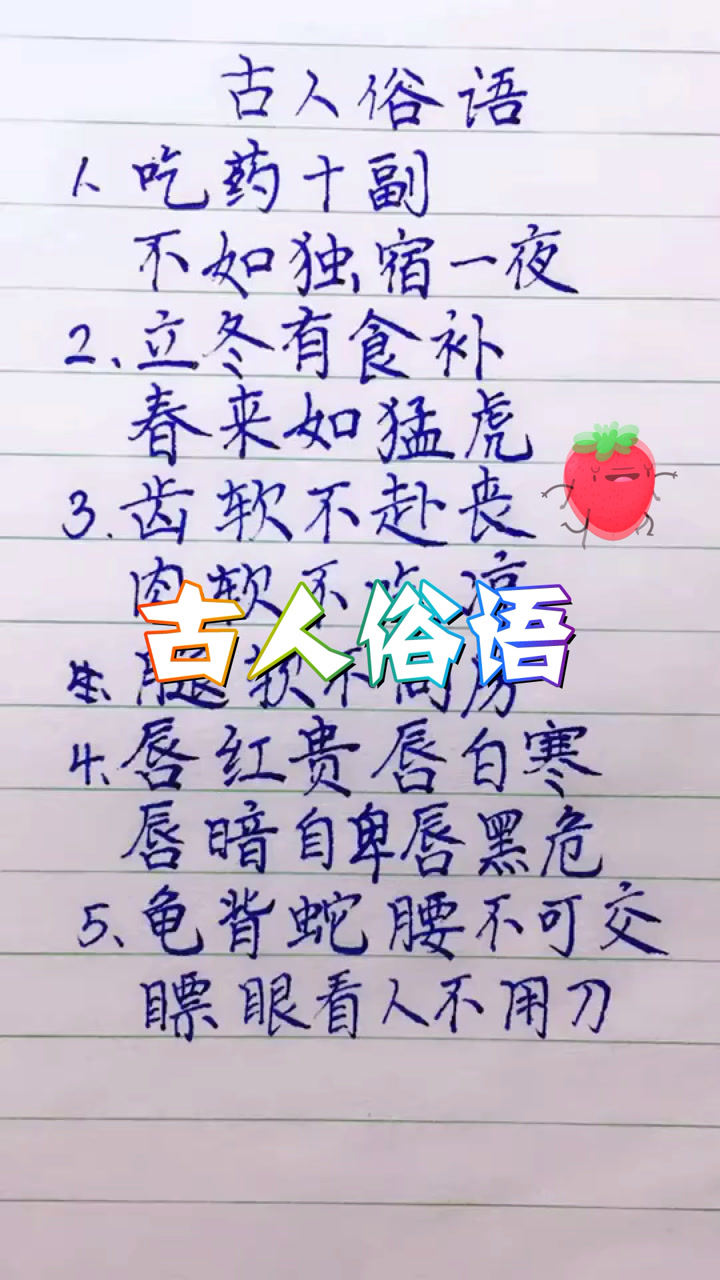 古人俗语
1、吃药十副
不如独宿一夜
2、立冬有食补
春来如猛虎
3.齿软不赴丧
肉软不吃凉
古人俗语
腿软不同房
4、唇红贵唇白寒
唇暗自卑唇黑危
5、龟背蛇腰不可交
瞟眼看人不用刀